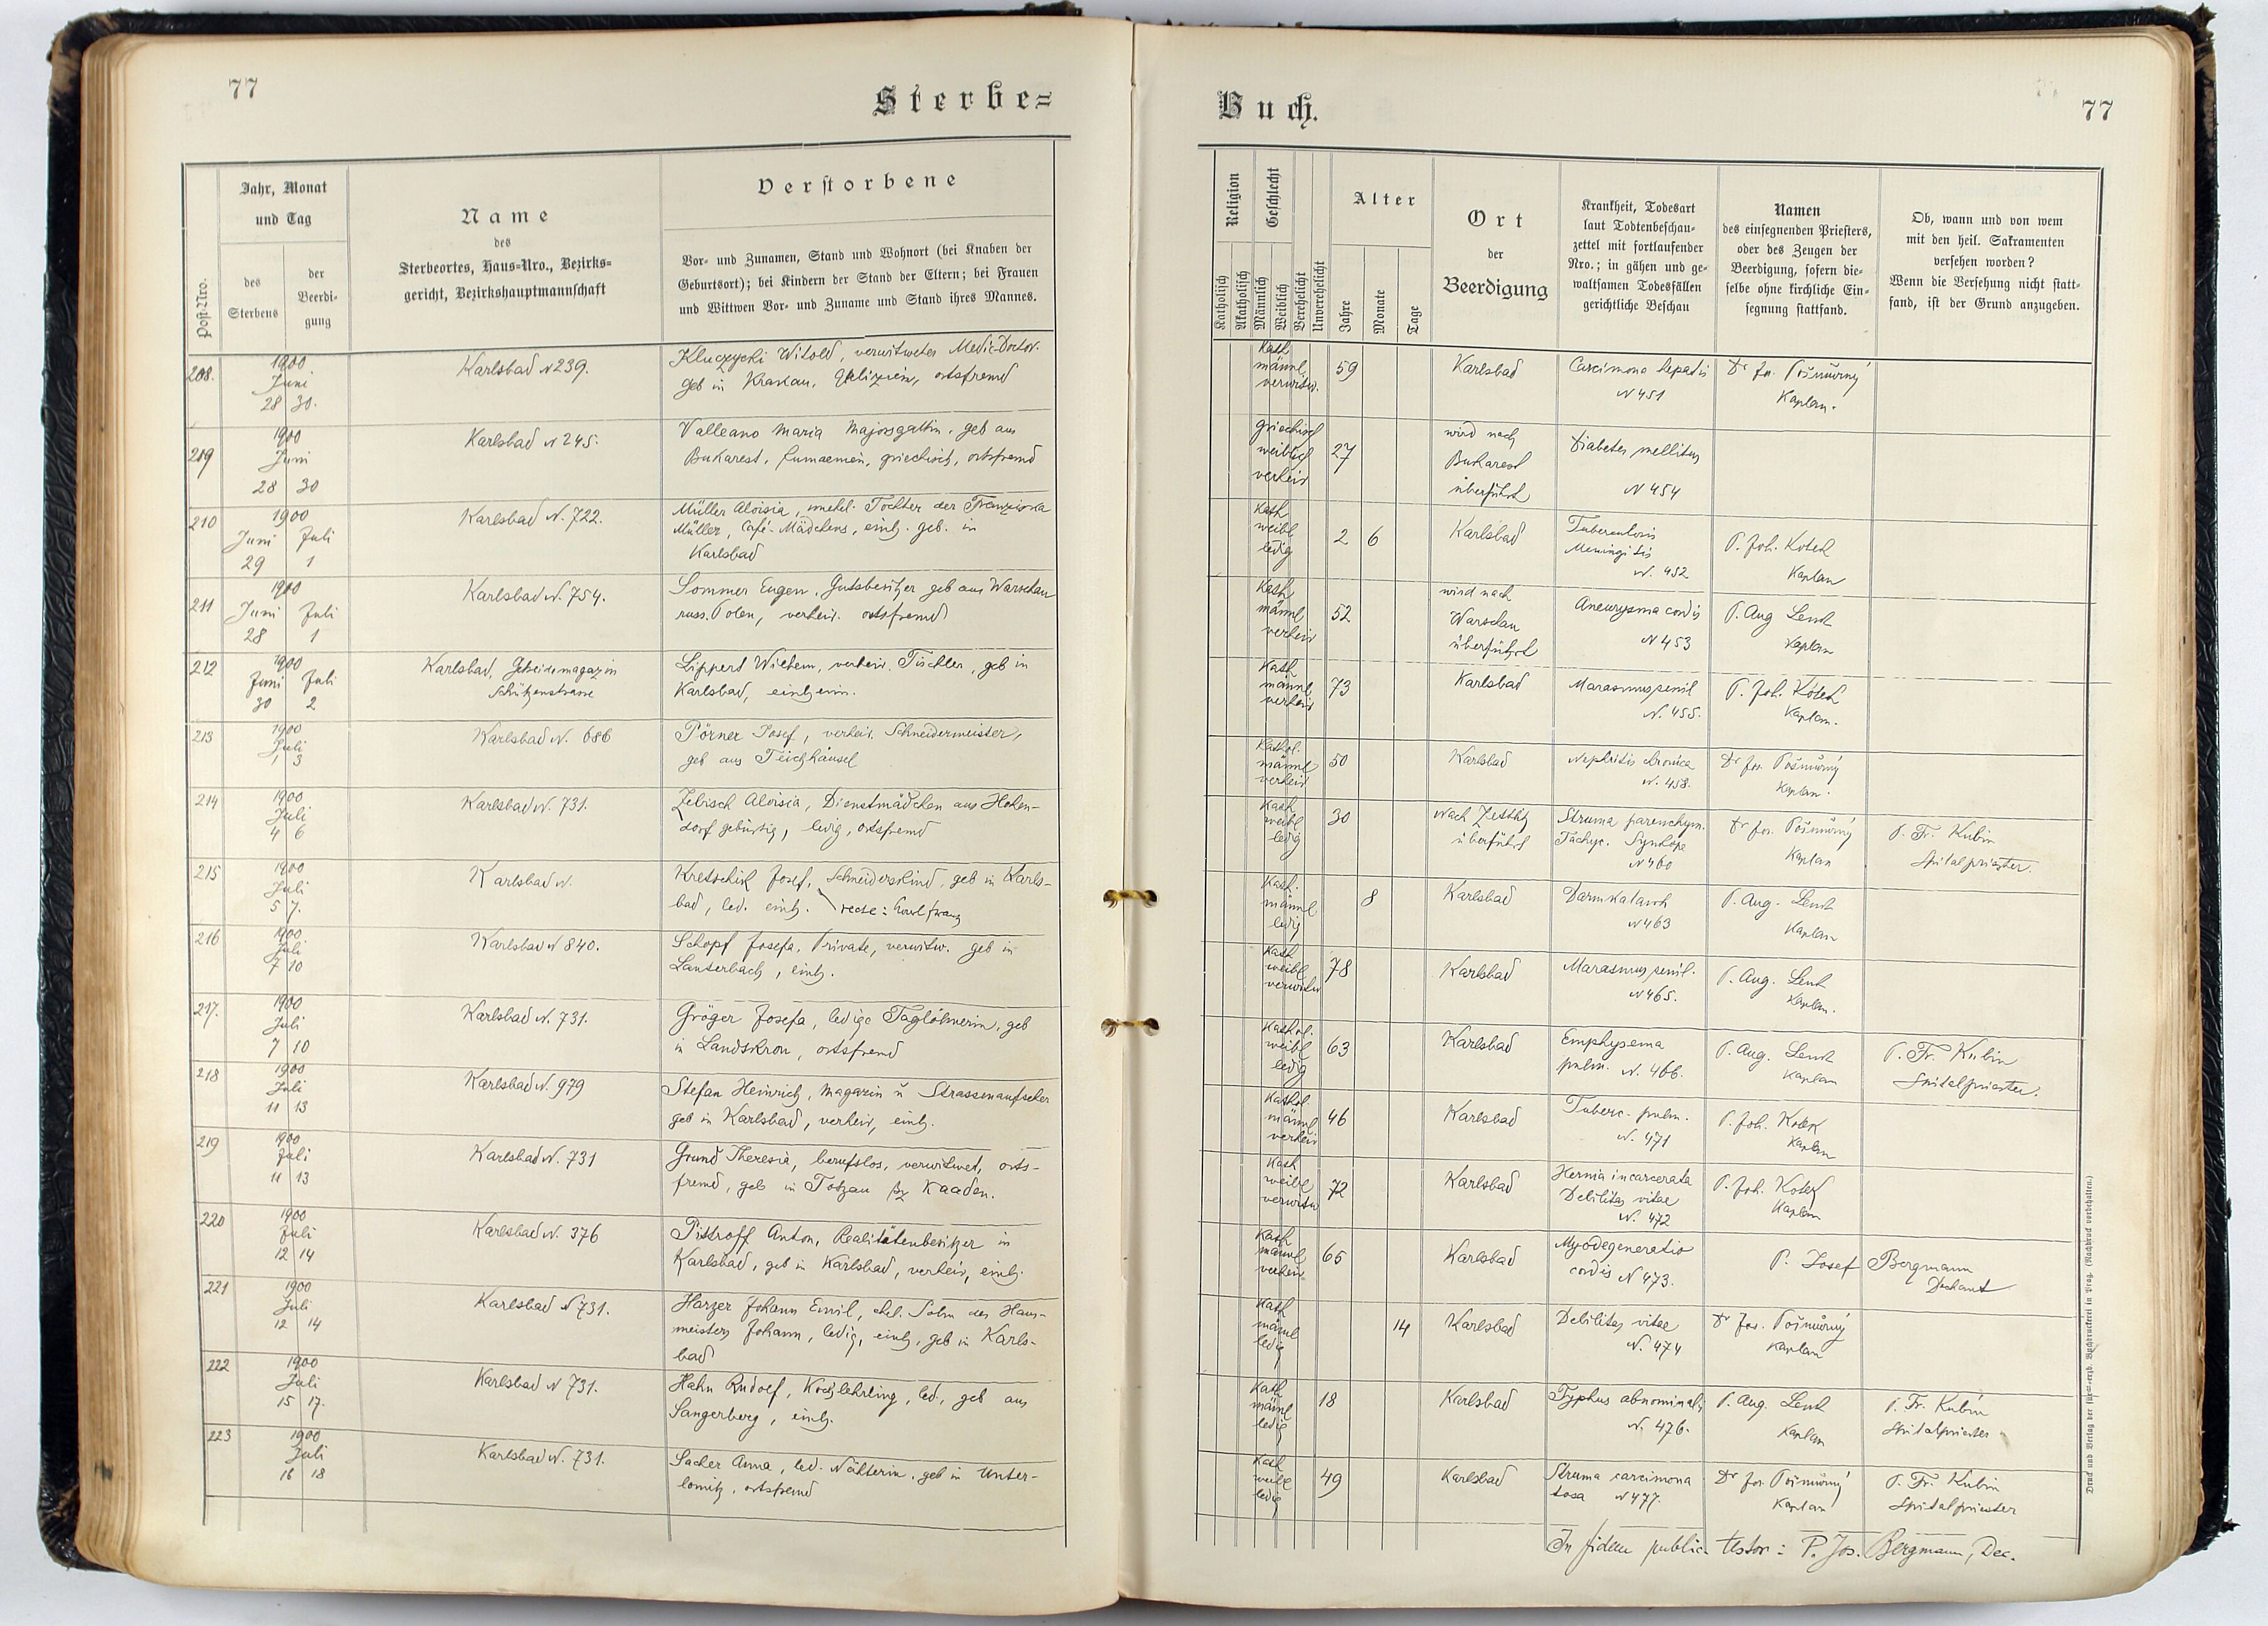 77
Sterbe=
Jahr, Monat
und Tag
Post-Nro.
des
Sterbens
der
Beerdi-
gung
Name
des
Sterbeortes, Haus-Nro., Bezirks=
gericht, Bezirkshauptmannschaft
Verstorbene
Vor- und Zunamen, Stand und Wohnort (bei Knaben der
Geburtsort); bei Kindern der Stand der Eltern; bei Frauen
und Wittwen Vor- und Zuname und Stand ihres Mannes.
208.
1900
Juni
28 30.
Karlsbad N 239.
Kluczycki Witold, verwitwetes Medic-Doctor.
geb in Krakau, Galizien, ortsfremd
219
1900
Juni
28 30
Karlsbad N 245.
Valleano Maria Majorsgattin, geb aus
Bukarest, Rumaenien, griechisch, ortsfremd
210
1900
Juni Juli
29 1
Karlsbad N. 722.
Müller Aloisia, unehel. Tochter der Franziska
Müller, Café-Mädchens, einh. geb. in
Karlsbad
211
1900
Juni Juli
28 1
Karlsbad N. 754.
Sommer Eugen, Gutsbesitzer geb aus Warschau
russ. Polen, verheir. ortsfremd
212
1900
Juni Juli
30 2
Karlsbad, Getreidemagazin
Schützenstrasse
Lippert Wilhelm, verheir. Tischler, geb in
Karlsbad, einheim.
213
1900
Juli
1 3
Karlsbad N. 686
Pörner Josef, verheir. Schneidermeister,
geb aus Teichhäusel
214
1900
Juli
4 6
Karlsbad N. 731.
Zebisch Aloisia, Dienstmädchen aus Hohen-
dorf gebürtig, ledig, ortsfremd
215
1900
Juli
5 7.
Karlsbad N.
Kretschik Josef, Schneiderskind, geb in Karls-
bad, led. einh. recte:
216
1900
Juli
7 10
Karlsbad N 840.
Schopf Josefa, Private, verwitw. geb in
Lauterbach, einh.
217.
1900
Juli
7 10
Karlsbad N. 731.
Gröger Josefa, ledige Taglöhnerin, geb
in Landskron, ortsfremd
218
1900
Juli
11 13
Karlsbad N. 979
Stefan Heinrich, Magazin u Strassenaufseher
geb in Karlsbad, verheir, einh.
219
1900
Juli
11 13
Karlsbad N. 731
Grund Theresia, berufslos, verwitwet, orts-
fremd, geb in Totzau Bz Kaaden.
220
1900
Juli
12 14
Karlsbad N. 376
Pittroff Anton, Realitätenbesitzer in
Karlsbad, geb in Karlsbad, verheir, einh.
221
1900
Juli
12 14
Karlsbad N 731.
Harzer Johann Emil, ehel. Sohn des Haus-
meisters Johann, ledig, einh, geb in Karls-
bad
222
1900
Juli
15 17.
Karlsbad N 731.
Hahn Rudolf, Kochlehrling, led, geb aus
Sangerberg, einh.
223
1900
Juli
16 18
Karlsbad N. 731.
Sacher Anna, led. Nähterin, geb in Unter-
lomitz, ortsfremd
Buch.
77
Religion
Katholisch
Akatholisch
Geschlecht
Männlich
Weiblich
Verehelicht
Unverehelicht
Alter
Jahre
Monate
Tage
Ort
der
Beerdigung
Krankheit, Todesart
laut Todtenbeschau-
zettel mit fortlaufender
Nro.; in gähen und ge-
waltsamen Todesfällen
gerichtliche Beschau
Namen
des einsegnenden Priesters,
oder des Zeugen der
Beerdigung, sofern die-
selbe ohne kirchliche Ein-
segnung stattfand.
Ob, wann und von wem
mit den heil. Sakramenten
versehen worden?
Wenn die Versehung nicht statt-
fand, ist der Grund anzugeben.
Kath
männl
verwitw.
59
Karlsbad
Carcinoma hepatis
N 451
Dr Jos. Pošmůrný
Kaplan.
griechisch
weiblich
verheir
27
wird nach
Bukarest
überführt
Diabetes mellitus
N 454
Kath
weibl
ledig
2 6
Karlsbad
Tuberculosis
Meningitis
N. 452
P. Joh. Kotek
Kaplan
Kath
männl
verheir
52
wird nach
Warschau
überführt
Aneurysma cordis
N 453
P. Aug Lenk
Kaplan
Kath
männl
verheir
73
Karlsbad
Marasmus senil
N. 455.
P. Joh. Kotek
Kaplan.
Kathol.
männl
verheir
50
Karlsbad
Nephritis chronica
N. 458.
Dr Jos. Pošmůrný
Kaplan.
Kath
weibl
ledig
30
nach Zettlitz
überführt
Struma parenchym.
Tachyc. Synkope
N 460
Dr Jos. Pošmůrný
Kaplan
P. Fr. Kubin
Spitalpriester.
Kath.
männl
ledig
8
Karlsbad
Darmkatarrh
N 463
P. Aug. Lenk
Kaplan
Kath
weibl
verwitw
78
Karlsbad
Marasmus senil.
N 465.
P. Aug. Lenk
Kaplan.
Kathol.
weibl
ledig
63
Karlsbad
Emphysema
pulm. N. 466.
P. Aug. Lenk
Kaplan
P. Fr. Kubin
Spitalpriester.
Kathol
männl
verheir
46
Karlsbad
Tuberc. pulm.
N. 471
P. Joh. Kotek
Kaplan
Kath
weibl
verwitw
72
Karlsbad
Hernia incarcerata
Debilitas vitae
N. 472
P. Joh. Kotek
Kaplan
Kath
männl
verheir
65
Karlsbad
Myodegeneratio
cordis N 473.
P. Josef Bergmann
Dechant
Kath
männl
ledig
14
Karlsbad
Debilitas vitae
N. 474
Dr Jos. Pošmůrný
Kaplan
Kath
männl
ledig
18
Karlsbad
Typhus abnominalis
N. 476.
P. Aug. Lenk
Kaplan
P. Fr. Kubin
Spitalpriester
Kath
weibl
ledig
49
Karlsbad
Struma carcinoma
tosa N 477.
Dr Jos. Pošmůrný
Kaplan
P. Fr. Kubin
Spitalpriester
In fidem public. testor: P. Jos. Bergmann, Dec.
Druck und Verlag der fürst-erzb. Buchdruckerei in Prag. (Nachdruck vorbehalten.)